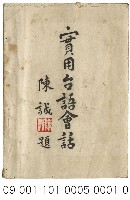 實用台語會話
陳誠題
09 001 101 0005 0001 0